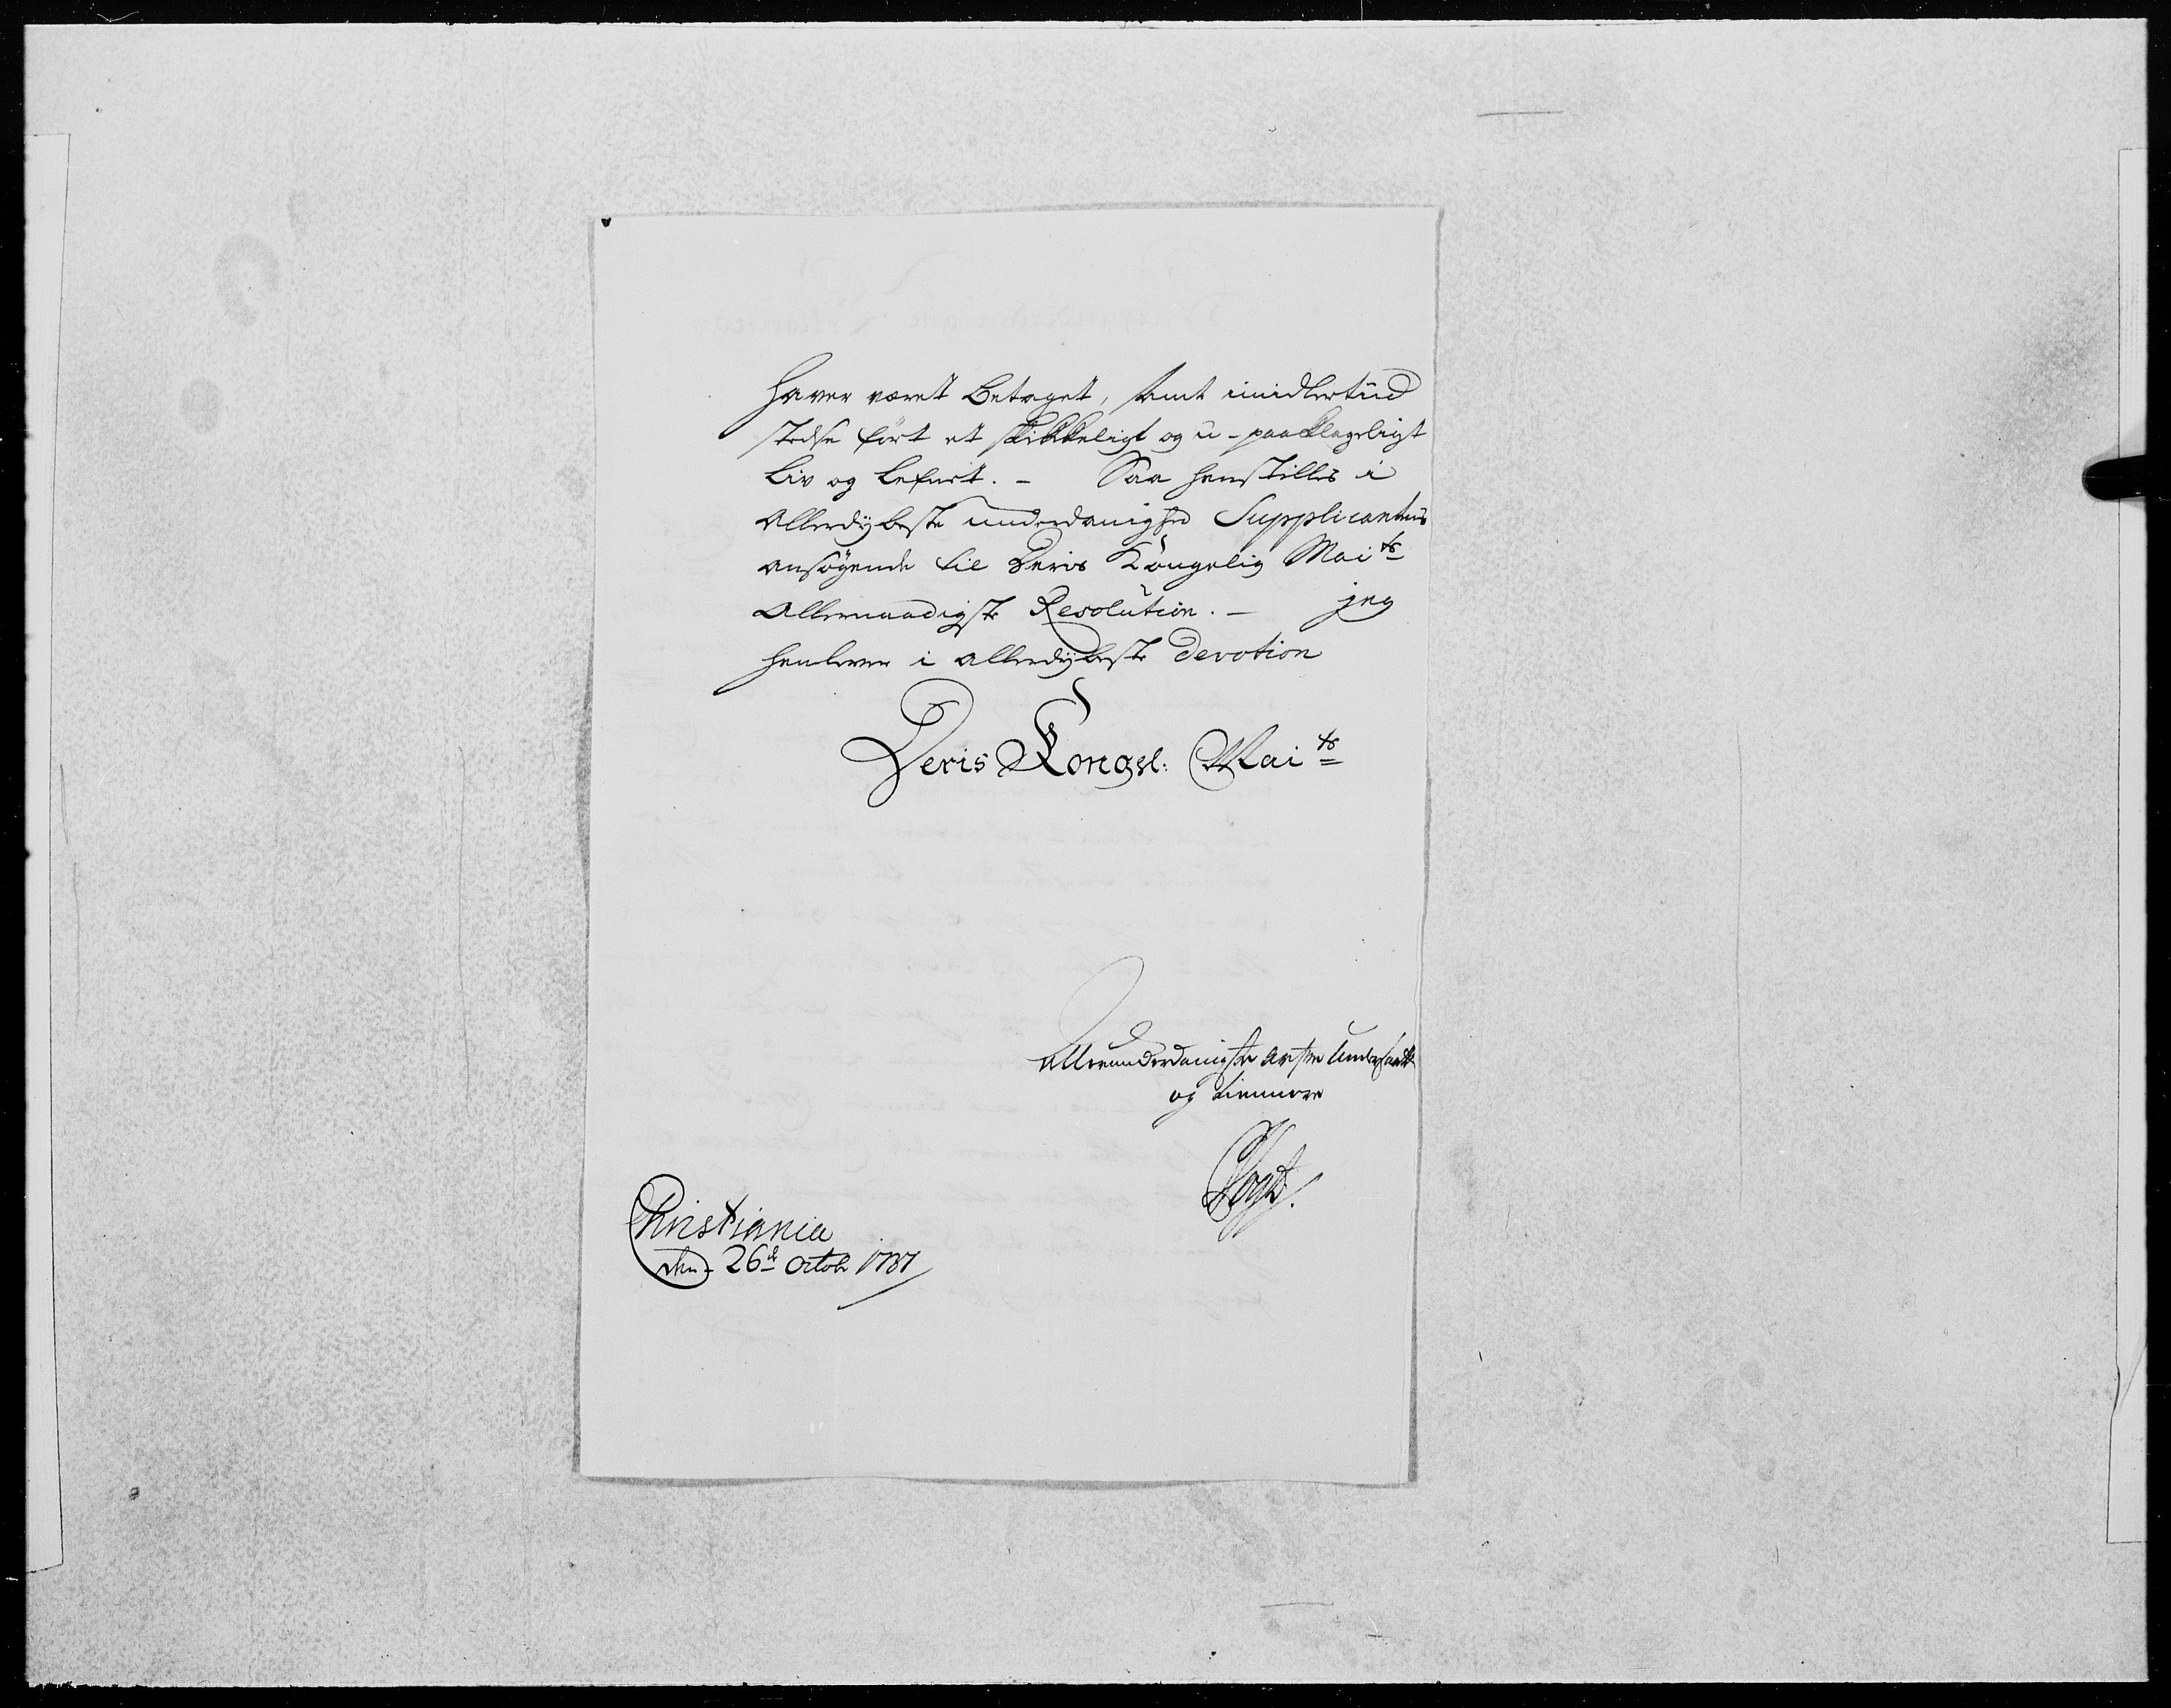 haver været betaget, samt imidlertiid
stedse ført et skikkeligt og u-paaklageligt
Liv og Lefnet. – Saa henstilles i
Allerdybeste underdanighed Supplicantens
ansøgende til Deris Kongelig Maits
Allernaadigste Resolution. – jeg
henlever i allerdybeste Devotion
Deris Kongel: Maits
Allerunderdanigste Undersaatt
og tiennere
Vogt.
Christiania
den 26d Octobr 1737